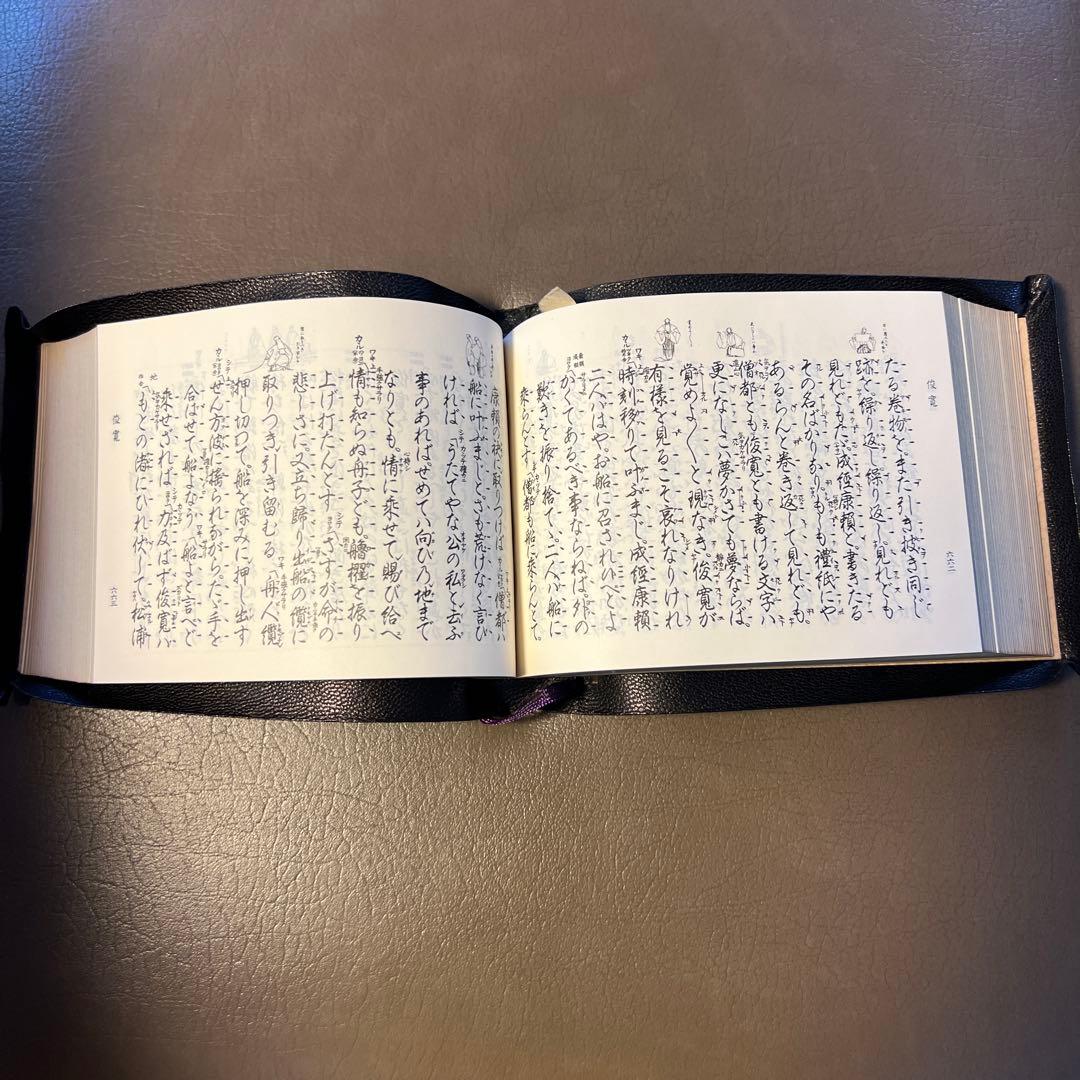 俊寛
六六二
たる巻物をまた引き披き同じ
跡を繰り返し繰り返し。見れども
見れどもたゞ成経康頼と書きたる
その名ばかりなり。もしも礼紙にや
あるらんと巻き返して見れども
僧都とも俊寛とも書ける文字ハ
更になし。こハ夢かさても夢ならば。
覚めよ〱と現なき。俊寛が
有様を見るこそ哀れなりけれ
ワキ
時刻移りて叶ふまじ。成経康頼
二人ハはや。お船に召されいへとよ
かくてあるべき事ならねば。外の
歎きを振り捨てゝ。二人ハ船に
乗らんとす
僧都も船に乗らんとて
康頼の袂に取りつけば
僧都ハ
船に叶ふまじとさも荒けなく言ひ
ければ
うたてやな公の私と云ふ
事のあればせめてハ向ひの地まで
なりとも。情に乗せて賜び給へ
ワキ
情も知らぬ舟子ども。艪櫂を振り
上げ打たんとす
シテ
さすが命の
悲しさに。又立ち歸り出船の。纜に
取りつき引き留むる
ワキ
舟人纜
押し切つて。船を深みに押し出す
シテ
せん方波に揺られながら。たゞ手を
合はせて船よなう
ワキ
船よと言へど
乗せざれば
シテ
力及ばず俊寛ハ
地
もとの渚にひれ伏して。松浦
俊寛
六六三